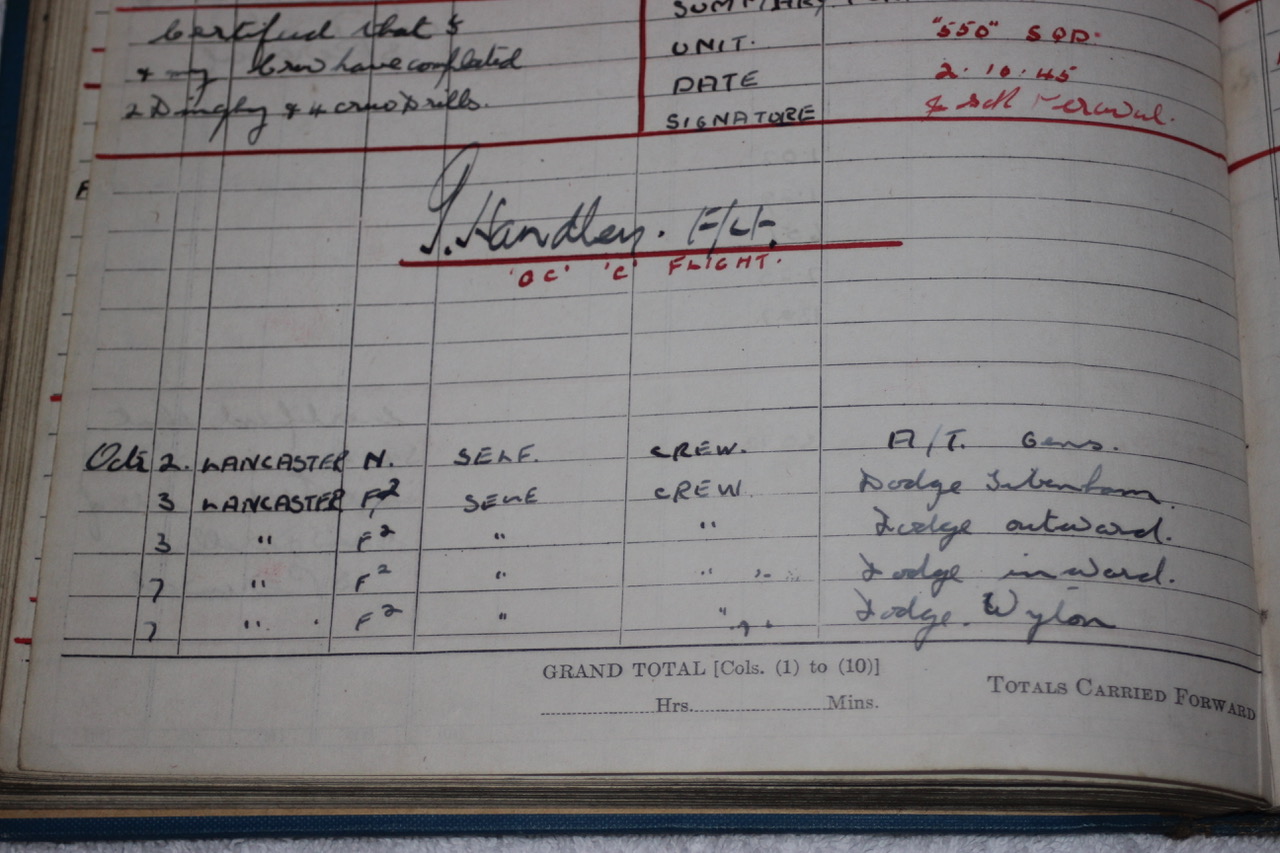 Certified that I
& my Crew have completed
2 Dinghy & 4 crew Drills.
SUMMARY
UNIT. "550" SQD.
DATE 2.10.45
SIGNATURE
Handley. F/Lt.
'OC' 'C' FLIGHT.
Oct 2. LANCASTER N. SELF. CREW. A/T. Gens.
3 LANCASTER F2 SELF CREW Dodge Tibenham
3 " F2 " " Dodge outward.
7 " F2 " " Dodge inward.
7 " F2 " " Dodge. Wyton
GRAND TOTAL [Cols. (1) to (10)]
Hrs. Mins.
TOTALS CARRIED FORWARD